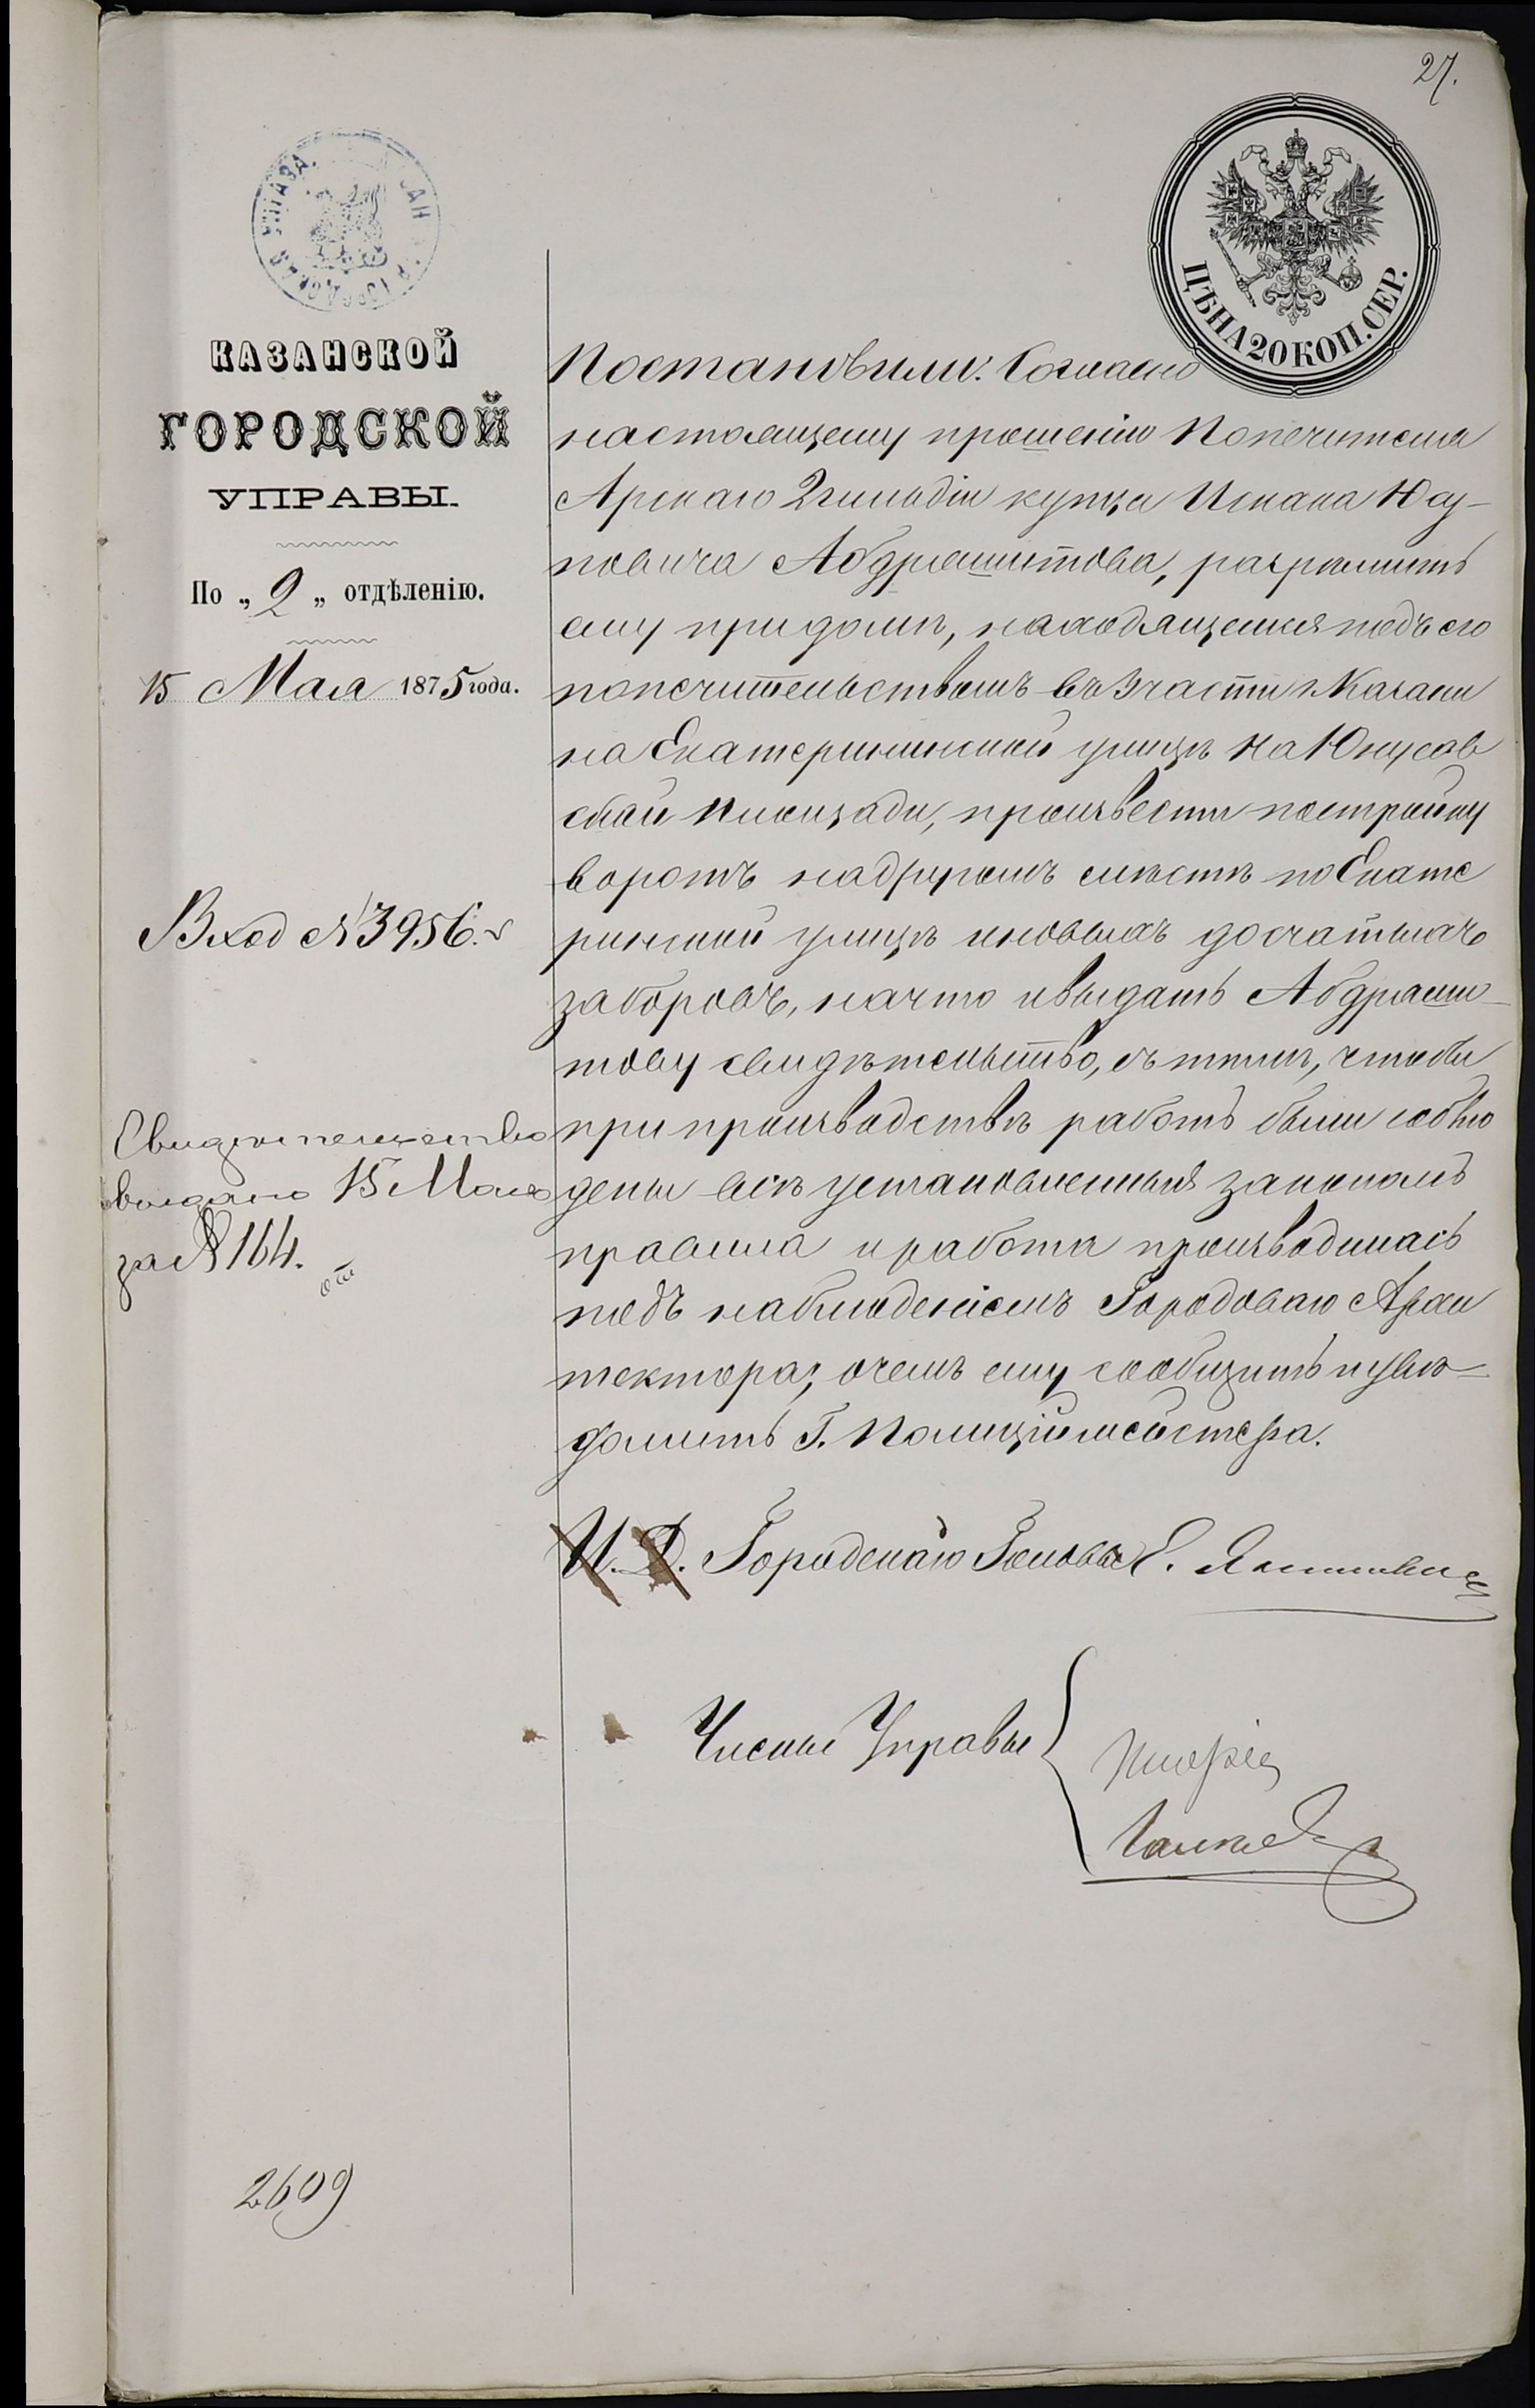 27.
ЦѢНА 20 КОП. СЕР.
КАЗАНСКОЙ
ГОРОДСКОЙ
УПРАВЫ.
По „2„ отдѣленію.
15 Мая 1875 года.
Вход №3956.
Свидѣтельство
выдано 15 Мая
за №164.
2609
Постановили: Согласно
настоящему прошенію Попечителя
Арскаго 2 гильдіи купца Исхака Юсу-
повича Абдрашитова, разрѣшить
ему при домѣ, находящемся подъ его
попечительствомъ въ 3 части г. Казани
на Екатерининской улицѣ на Юнусов
ской площади, произвести постройку
воротъ на другомъ мѣстѣ по Екате
рининской улицѣ и новыхъ досчатыхъ
заборовъ, на что и выдать Абдраши-
тову свидѣтельство, съ тѣмъ, чтобы
при производствѣ работъ были соблю
дены всѣ установленныя закономъ
правила и работа производилась
подъ наблюденіемъ Городоваго Архи
тектора; о чемъ ему сообщить и увѣ-
домить Г. Полиціймейстера.
И. Д. Городскаго Головы Е.
Члены Управы